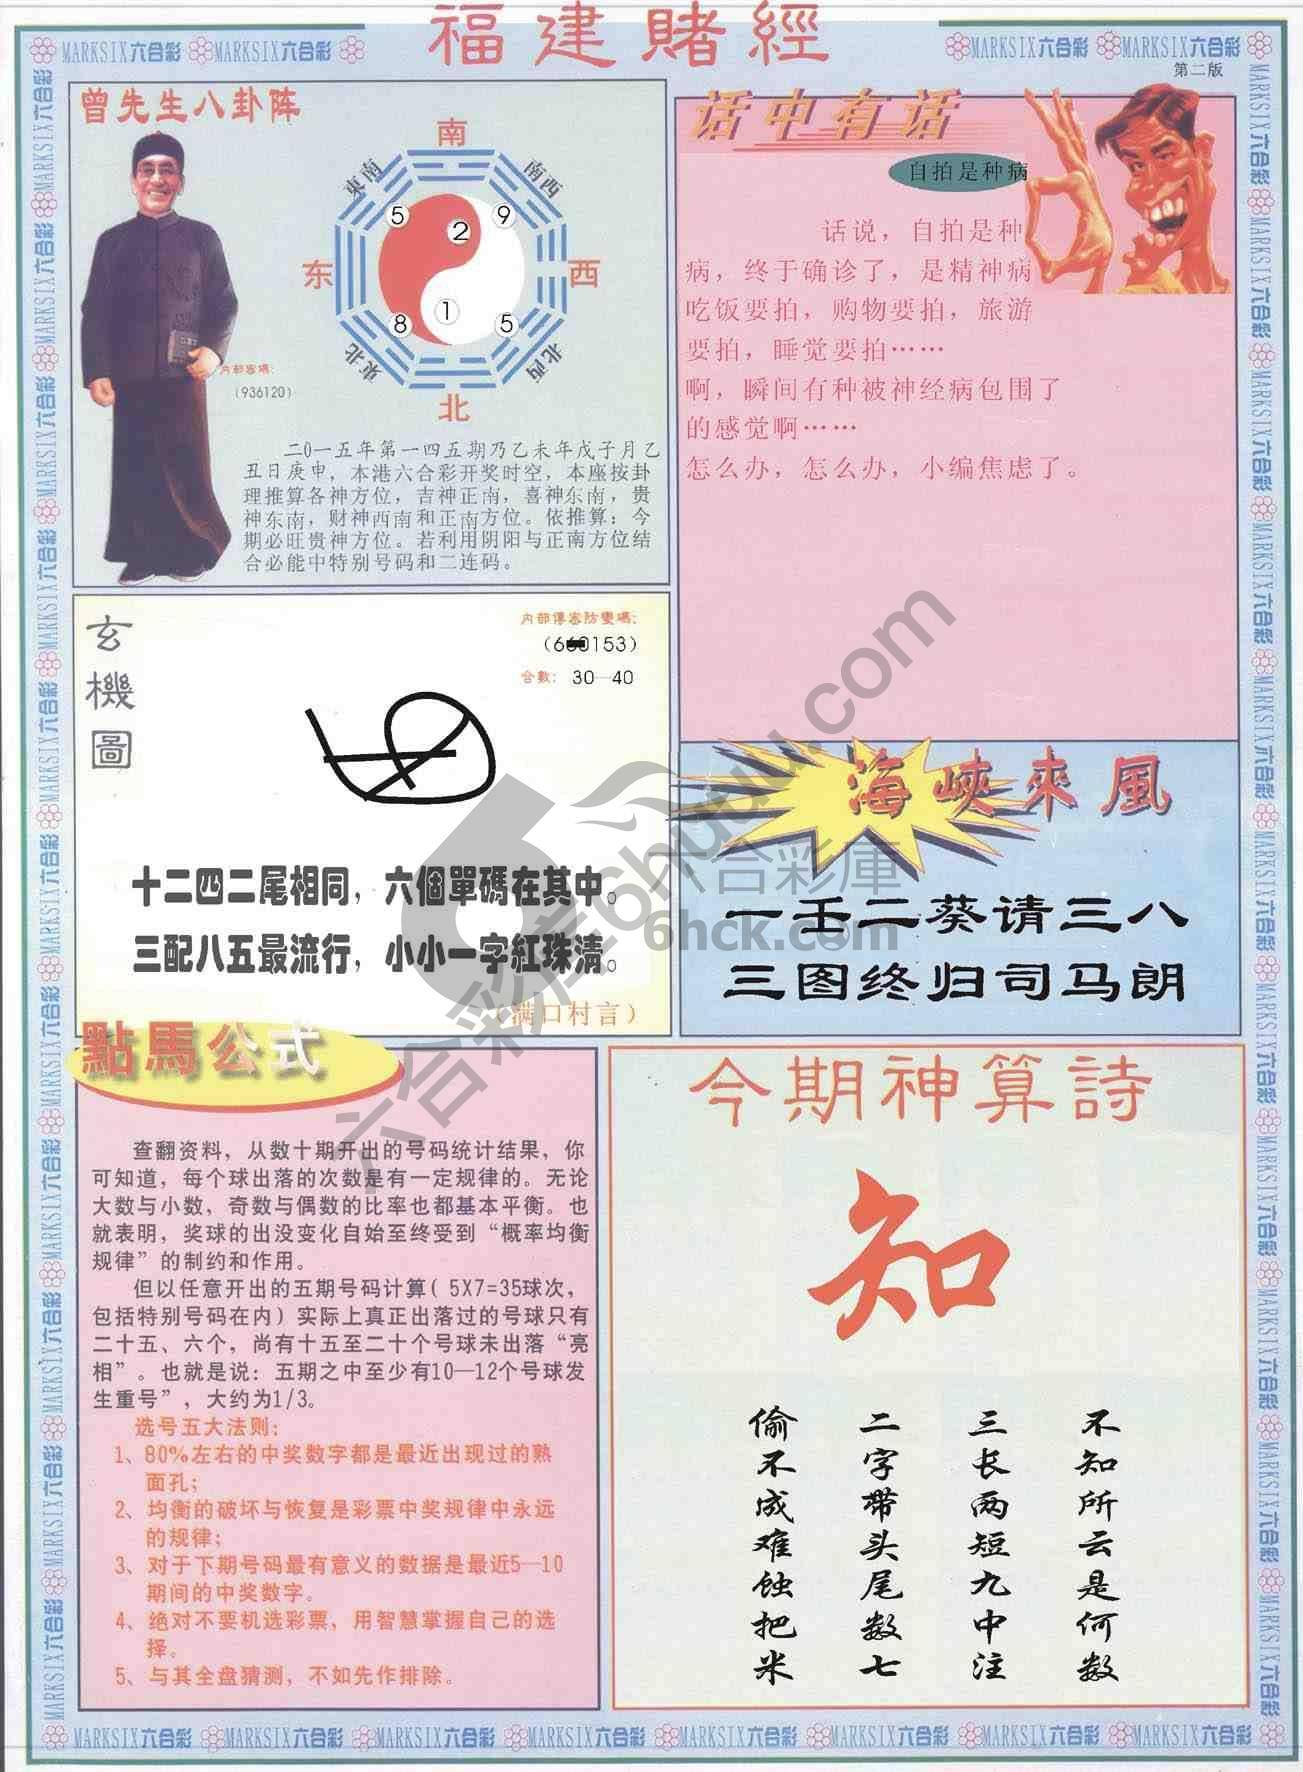 福建賭經
MARKSIX六合彩 MARKSIX六合彩
MARKSIX六合彩 MARKSIX六合彩
第二版
曾先生八卦阵
南
東南
南西
5
2
9
东
西
8
1
5
東北
北西
北
内部密碼：
（936120）
二0一五年第一四五期乃乙未年戊子月乙
丑日庚申，本港六合彩开奖时空，本座按卦
理推算各神方位，吉神正南，喜神东南，贵
神东南，财神西南和正南方位。依推算：今
期必旺贵神方位。若利用阴阳与正南方位结
合必能中特别号码和二连码。
话中有话
自拍是种病
话说，自拍是种
病，终于确诊了，是精神病
吃饭要拍，购物要拍，旅游
要拍，睡觉要拍……
啊，瞬间有种被神经病包围了
的感觉啊……
怎么办，怎么办，小编焦虑了。
玄機圖
内部傳密防變碼：
合數：30—40
十二四二尾相同，六個單碼在其中。
三配八五最流行，小小一字紅珠清。
（满口村言）
海峽來風
一壬二葵请三八
三图终归司马朗
點馬公式
查翻资料，从数十期开出的号码统计结果，你
可知道，每个球出落的次数是有一定规律的。无论
大数与小数，奇数与偶数的比率也都基本平衡。也
就表明，奖球的出没变化自始至终受到“概率均衡
规律”的制约和作用。
但以任意开出的五期号码计算（5X7=35球次，
包括特别号码在内）实际上真正出落过的号球只有
二十五、六个，尚有十五至二十个号球未出落“亮
相”。也就是说：五期之中至少有10—12个号球发
生重号”，大约为1/3。
选号五大法则：
1、80%左右的中奖数字都是最近出现过的熟
面孔；
2、均衡的破坏与恢复是彩票中奖规律中永远
的规律；
3、对于下期号码最有意义的数据是最近5—10
期间的中奖数字。
4、绝对不要机选彩票，用智慧掌握自己的选
择。
5、与其全盘猜测，不如先作排除。
今期神算詩
知
不知所云是何数
三长两短九中注
二字带头尾数七
偷不成难蚀把米
六合彩库6hcku.com
六合彩庫
6hck.com
MARKSIX六合彩 MARKSIX六合彩 MARKSIX六合彩 MARKSIX六合彩 MARKSIX六合彩 MARKSIX六合彩 MARKSIX六合彩 MARKSIX六合彩